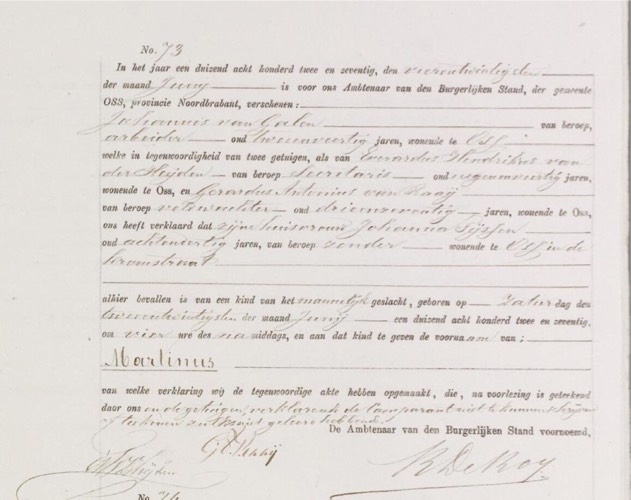 No. 73
In het jaar een duizend acht honderd twee en zeventig, den vierentwintigsten
der maand Junij is voor ons Ambtenaar van den Burgerlijken Stand, der gemeente
OSS, provincie Noordbrabant, verschenen:
Johannis van Galen van beroep,
arbeider oud tweeenveertig jaren, wonende te Oss
welke in tegenwoordigheid van twee getuigen, als van Everardus Hendrikus van
der Heijden van beroep Secretaris oud negenenveertig jaren,
wonende te Oss, en Gerardus Antonius van Raaij
van beroep oud drieenzeventig jaren, wonende te Oss,
ons heeft verklaard dat zijne huisvrouw Johanna Tijssen
oud achtenveertig jaren, van beroep zonder wonende te Oss in de
Kromstraat
alhier bevallen is van een kind van het mannelijk geslacht, geboren op Zaturdag den
tweeentwintigsten der maand Junij een duizend acht honderd twee en zeventig,
om vier ure des namiddags, en aan dat kind te geven de voornaam van:
Martinus
van welke verklaring wij de tegenwoordige akte hebben opgemaakt, die, na voorlezing is geteekend
door ons en de getuigen, verklarende de Comparant niet te kunnen schrijven
of teekenen zulks niet geleerd hebbende.
De Ambtenaar van den Burgerlijken Stand voornoemd,
Raaij
Heijden
No. 74